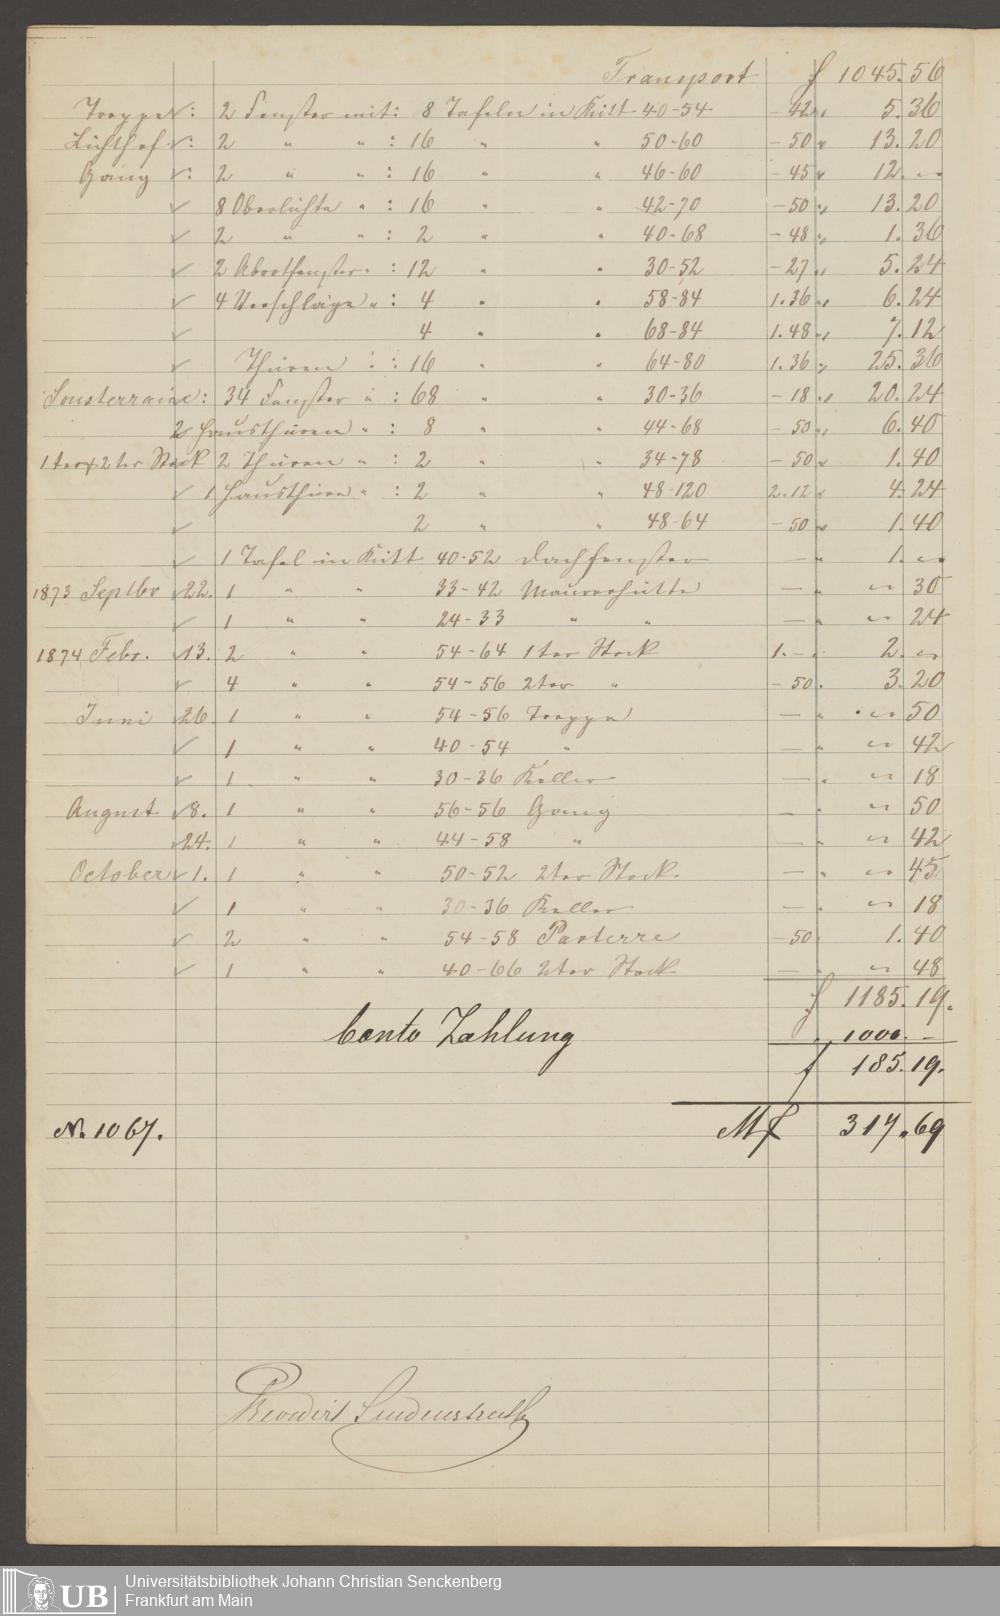 Transport f 1045. 56
Treppe : 2 Fenster mit : 8 Tafeln in Kitt 40-54 - 42 „ 5. 36
Lichthof : 2 „ „ : 16 „ „ 50-60 - 50 „ 13. 20
Gang : 2 „ „ : 16 „ „ 46-60 - 45 „ 12. —
8 Oberlichte „ : 16 „ „ 42-70 - 50 „ 13. 20
2 „ „ : 2 „ „ 40-68 - 48 „ 1. 36
2 Abortfenster „ : 12 „ „ 30-52 - 27 „ 5. 24
4 Verschläge „ : 4 „ „ 58-84 1. 36 „ 6. 24
4 „ „ 68-84 1. 48 „ 7. 12
Thüren „ : 16 „ „ 64-80 1. 36 „ 25. 36
Souterraine : 34 Fenster „ : 68 „ „ 30-36 - 18 „ 20. 24
2 Hausthüren „ : 8 „ „ 44-68 - 50 „ 6. 40
1ter + 2ter Stock 2 Thüren „ : 2 „ „ 34-78 - 50 „ 1. 40
1 Hausthüre „ : 2 „ „ 48-120 2. 12 „ 4. 24
2 „ „ 48-64 - 50 „ 1. 40
1 Tafel in Kitt 40-52 Dachfenster — „ 1. —
1873 Septbr 22. 1 „ „ 33-42 Maurerhütte — „ — 30
1 „ „ 24-33 „ „ — „ — 24
1874 Febr. 13. 2 „ „ 54-64 1ter Stock 1. — „ 2. —
4 „ „ 54-56 2ter „ - 50 „ 3. 20
Juni 26. 1 „ „ 54-56 Treppe — „ — 50
1 „ „ 40-54 „ — „ — 42
1 „ „ 30-36 Keller — „ — 18
August 8. 1 „ „ 56-56 Gang — „ — 50
24. 1 „ „ 44-58 „ — „ — 42
October 1. 1 „ „ 50-52 2ter Stock. — „ — 45
1 „ „ 30-36 Keller — „ — 18
2 „ „ 54-58 Parterre - 50 „ 1. 40
1 „ „ 40-66 2ter Stock — „ — 48
f 1185. 19.
Conto Zahlung „ 1000. —
f 185. 19.
N. 1067. M 317. 69
UB
Universitätsbibliothek Johann Christian Senckenberg
Frankfurt am Main